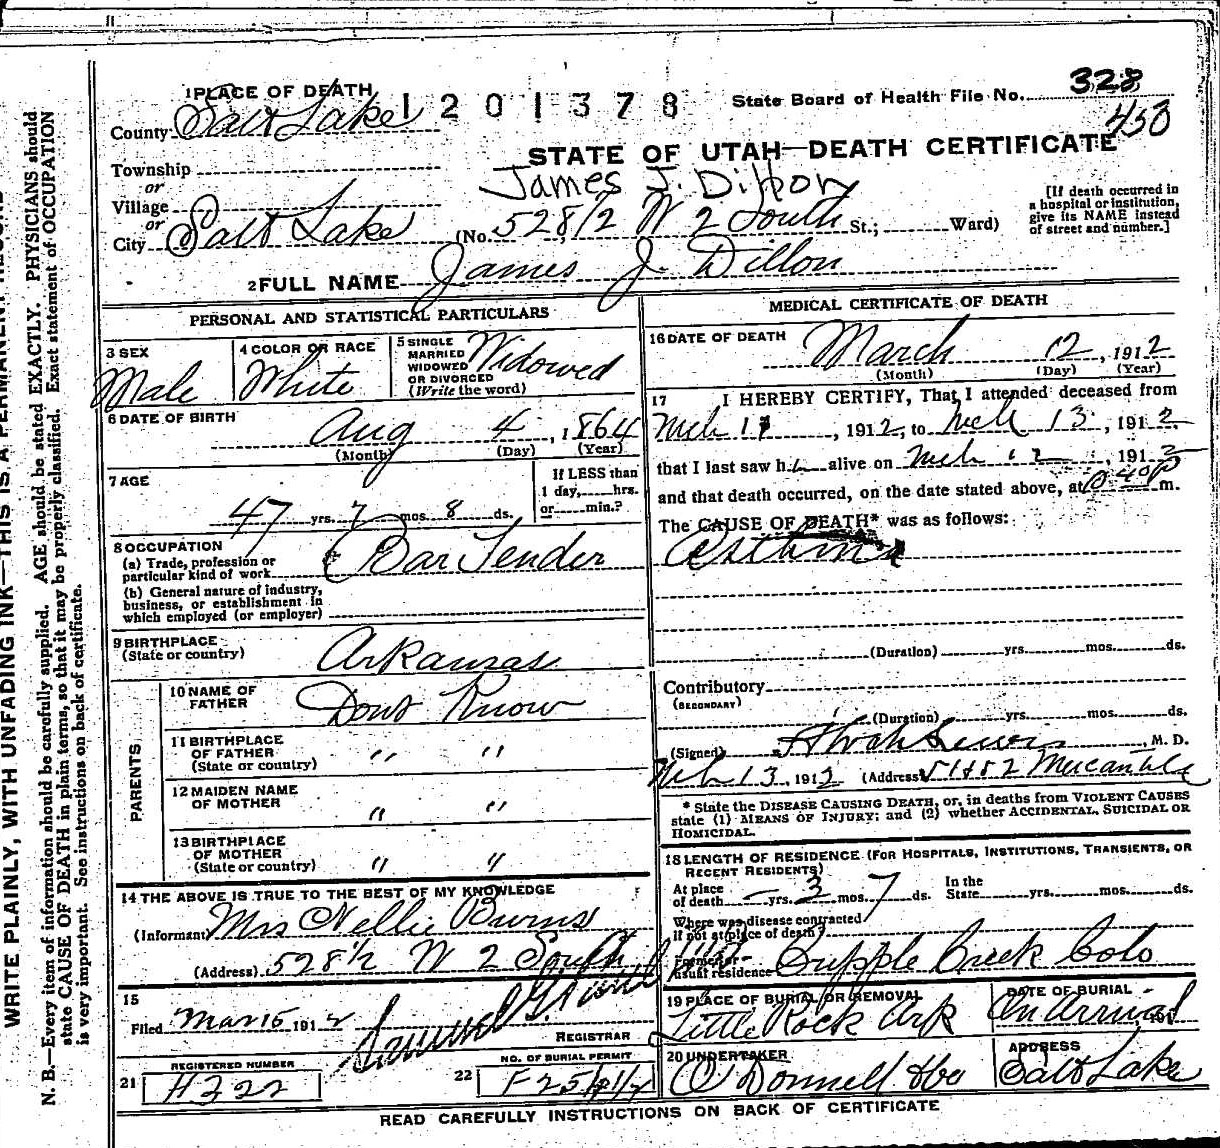 WRITE PLAINLY, WITH UNFADING INK—THIS IS A PERMANENT RECORD
N. B.—Every item of information should be carefully supplied. AGE should be stated EXACTLY. PHYSICIANS should
state CAUSE OF DEATH in plain terms, so that it may be properly classified. Exact statement of OCCUPATION
is very important. See instructions on back of certificate.
1 PLACE OF DEATH
1201378
State Board of Health File No. 328
453
County Salt Lake
STATE OF UTAH—DEATH CERTIFICATE
Township
or
James J. Dillon
Village
or
City Salt Lake (No. 528 1/2 W 2 South St.; Ward)
[If death occurred in
a hospital or institution,
give its NAME instead
of street and number.]
2 FULL NAME James J. Dillon
PERSONAL AND STATISTICAL PARTICULARS
3 SEX
Male
4 COLOR OR RACE
White
5 SINGLE
MARRIED
WIDOWED
OR DIVORCED
(Write the word)
Widowed
6 DATE OF BIRTH
Aug 4, 1864
(Month) (Day) (Year)
7 AGE
47 yrs. 7 mos. 8 ds.
If LESS than
1 day, hrs.
or min.?
8 OCCUPATION
(a) Trade, profession or
particular kind of work Bar Tender
(b) General nature of industry,
business, or establishment in
which employed (or employer)
9 BIRTHPLACE
(State or country) Arkansas
PARENTS
10 NAME OF
FATHER Dont Know
11 BIRTHPLACE
OF FATHER
(State or country) " "
12 MAIDEN NAME
OF MOTHER " "
13 BIRTHPLACE
OF MOTHER
(State or country) " "
14 THE ABOVE IS TRUE TO THE BEST OF MY KNOWLEDGE
(Informant) Mrs Nellie Burns
(Address) 528 1/2 W 2 South
15
Filed Mar 15 1912
REGISTRAR
REGISTERED NUMBER
21 H322
NO. OF BURIAL PERMIT
22
MEDICAL CERTIFICATE OF DEATH
16 DATE OF DEATH March 12, 1912
(Month) (Day) (Year)
17 I HEREBY CERTIFY, That I attended deceased from
Mch, 1912, to Mch 13, 1912
that I last saw h alive on Mch 12, 1912
and that death occurred, on the date stated above, at m.
The CAUSE OF DEATH* was as follows:
Asthma
(Duration) yrs. mos. ds.
Contributory
(SECONDARY)
(Duration) yrs. mos. ds.
(Signed) Lewis, M. D.
Mch 13, 1912 (Address) Mercantile
* State the DISEASE CAUSING DEATH, or, in deaths from VIOLENT CAUSES
state (1) MEANS OF INJURY; and (2) whether ACCIDENTAL, SUICIDAL OR
HOMICIDAL.
18 LENGTH OF RESIDENCE (FOR HOSPITALS, INSTITUTIONS, TRANSIENTS, OR
RECENT RESIDENTS)
At place
of death — yrs. 3 mos. 7 ds.
In the
State yrs. mos. ds.
Where was disease contracted
if not at place of death?
Former or
usual residence Cripple Creek Colo
19 PLACE OF BURIAL OR REMOVAL
Little Rock Ark
DATE OF BURIAL
On Arrival, 191
20 UNDERTAKER
O'Donnell & Co
ADDRESS
Salt Lake
READ CAREFULLY INSTRUCTIONS ON BACK OF CERTIFICATE